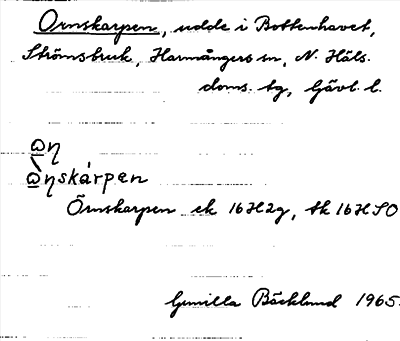 Ornskarpen, udde i Bottenhavet,
Strömsbruk, Harmångers sn, N. Häls.
doms. tg, Gävl. l.
ῳη
ῳηskárpen
Örnskarpen ek 16H2g, tk 16H SO
Gunilla Bäcklund 1965.